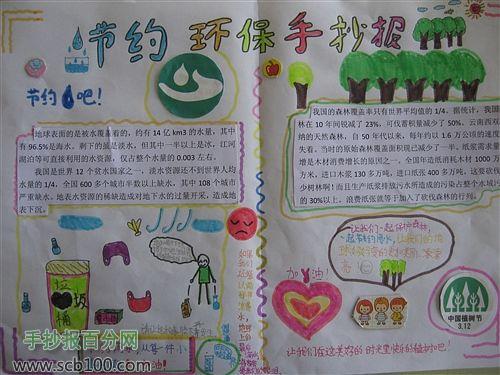 节约 环保手抄报
节约吧！
地球表面的是被水覆盖着的，约有 14 亿 km3 的水量，其中
有 96.5%是海水。剩下的虽是淡水，但其中一半以上是冰，江河
湖泊等可直接利用的水资源，仅占整个水量的 0.003 左右。
我国是世界 12 个贫水国家之一，淡水资源还不到世界人均
水量的 1/4。全国 600 多个城市半数以上缺水，其中 108 个城市
严重缺水。地表水资源的稀缺造成对地下水的过量开采，造成地
表下沉。
我国的森林覆盖率只有世界平均值的 1/4。据统计，我国森
林在 10 年间锐减了 23%，可伐蓄积量减少了 50%，云南西双版
纳的天然森林，自 50 年代以来，每年约以 1.6 万公顷的速度消
失着。当时的原始森林覆盖面积现已减少了一半。纸浆需求量猛
增是木材消费增长的原因之一，全国年造纸消耗木材 1000 万立
方米，进口木浆 130 多万吨，进口纸张 400 多万吨，这要砍伐多
少树林啊！而且生产纸浆排放污水所造成的污染占整个水域污染
的 30%以上。浪费纸张就等于加入了砍伐森林的行列。
让我们一起保护森林，
垃
圾
桶
加
油！
中国植树节
3.12
让我们在这美好的时光里快乐的植树吧！
手抄报百分网
www.scb100.com